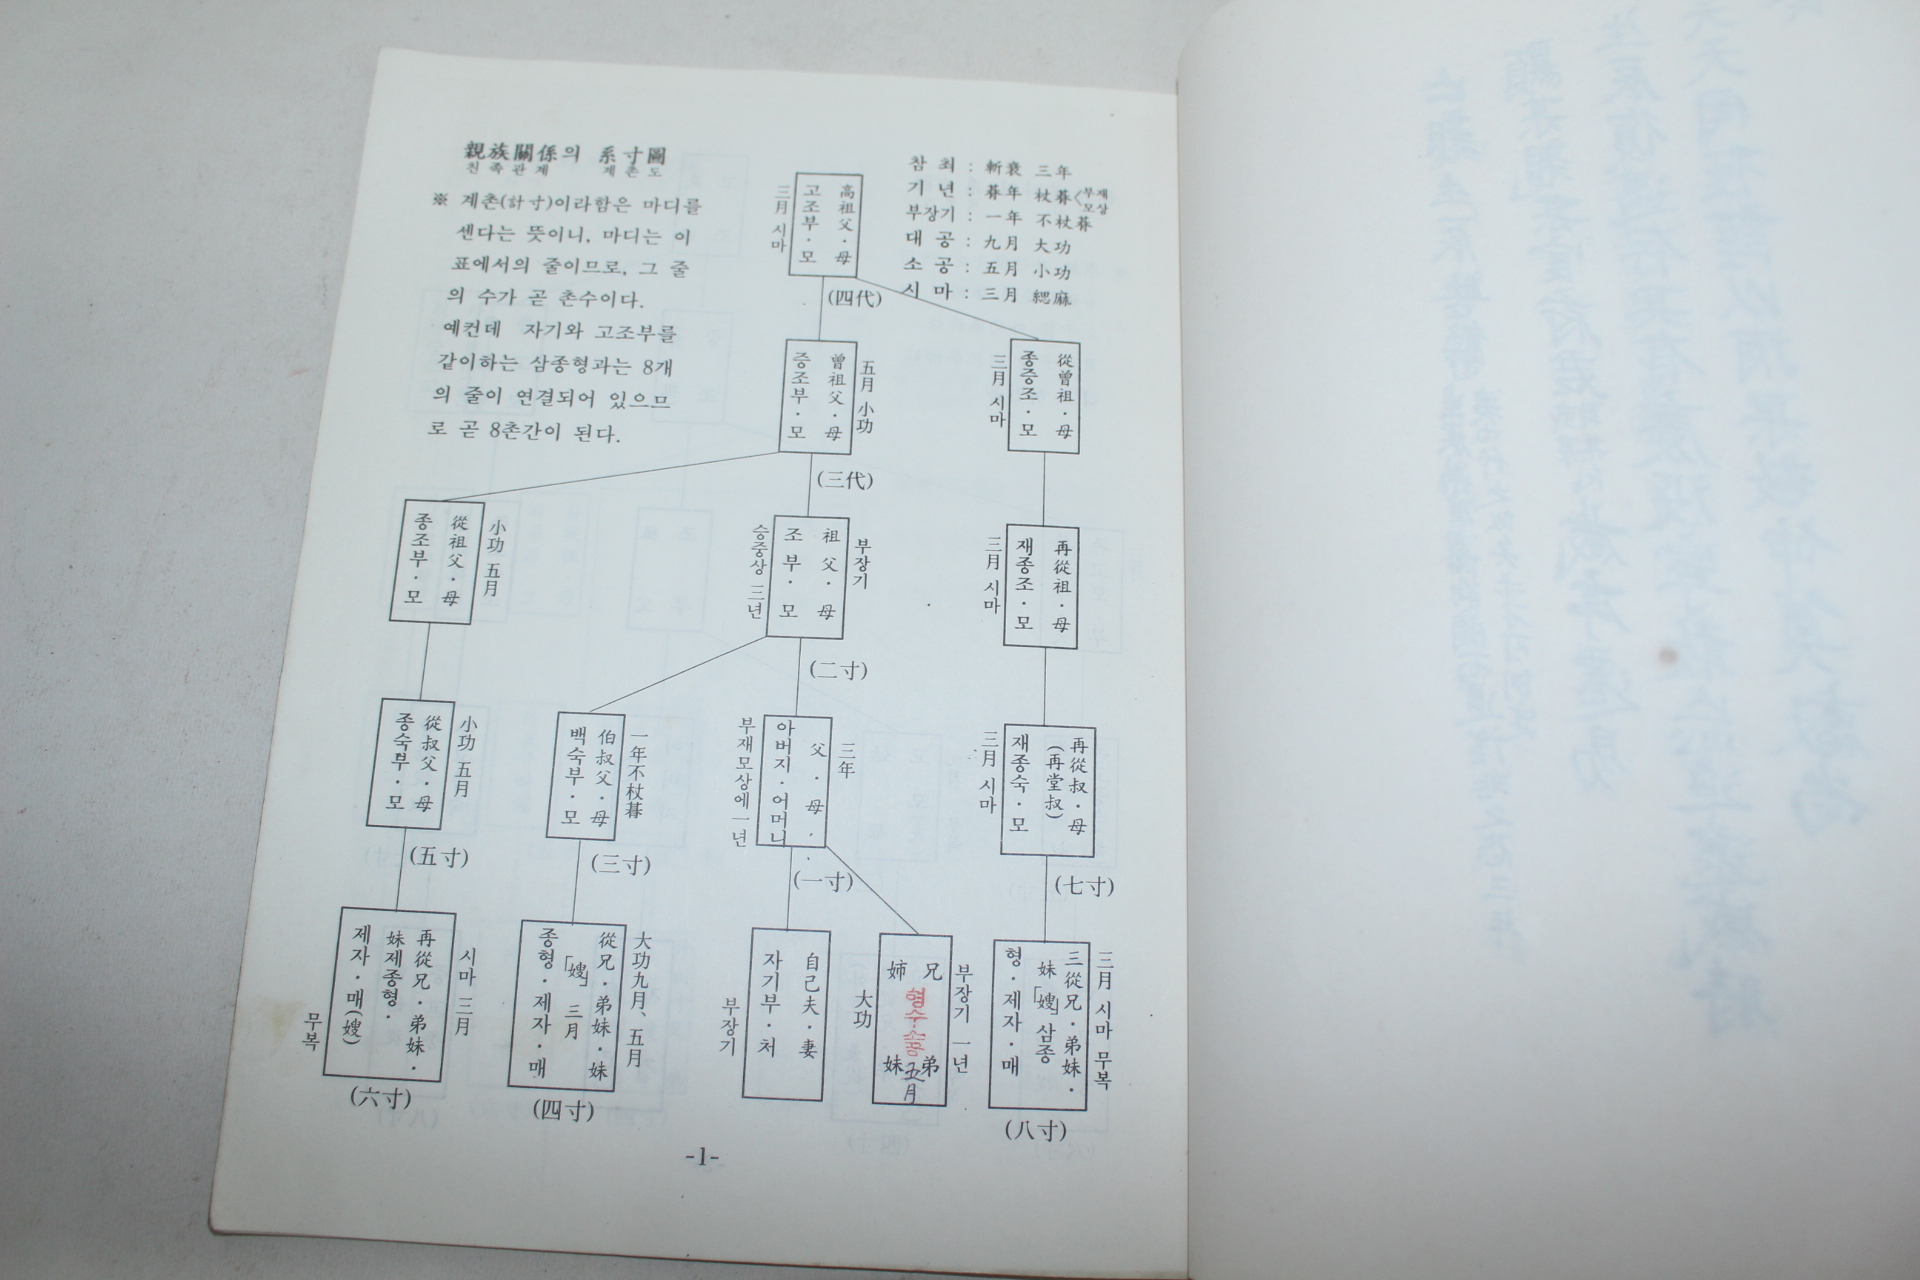 親族關係의 系寸圖
친족관계 계촌도
※ 계촌(計寸)이라함은 마디를
센다는 뜻이니, 마디는 이
표에서의 줄이므로, 그 줄
의 수가 곧 촌수이다.
예컨데 자기와 고조부를
같이하는 삼종형과는 8개
의 줄이 연결되어 있으므
로 곧 8촌간이 된다.
참 최 : 斬衰 三年
기 년 : 朞年 杖朞〈부재모상
부장기 : 一年 不杖朞
대 공 : 九月 大功
소 공 : 五月 小功
시 마 : 三月 緦麻
高祖父·母
고조부·모
三月 시마
(四代)
曾祖父·母
증조부·모
五月 小功
從曾祖·母
종증조·모
三月 시마
(三代)
從祖父·母
종조부·모
小功 五月
祖父·母
조부·모
부장기
승중상 三년
再從祖·母
재종조·모
三月 시마
(二寸)
從叔父·母
종숙부·모
小功 五月
伯叔父·母
백숙부·모
一年不杖暮
父·母·
아버지·어머니
三年
부재모상에一년
再從叔·母
(再堂叔)
재종숙·모
三月 시마
(五寸)
(三寸)
(一寸)
(七寸)
再從兄·弟妹·
妹제종형·
제자·매(嫂)
시마 三月
무복
(六寸)
從兄·弟妹·妹
「嫂」 三月
종형·제자·매
大功九月、五月
(四寸)
自己夫·妻
자기부·처
부장기
兄 弟
姉 妹
형수소공
五月
부장기 一년
大功
三從兄·弟妹·
妹「嫂」삼종
형·제자·매
三月 시마 무복
(八寸)
-1-